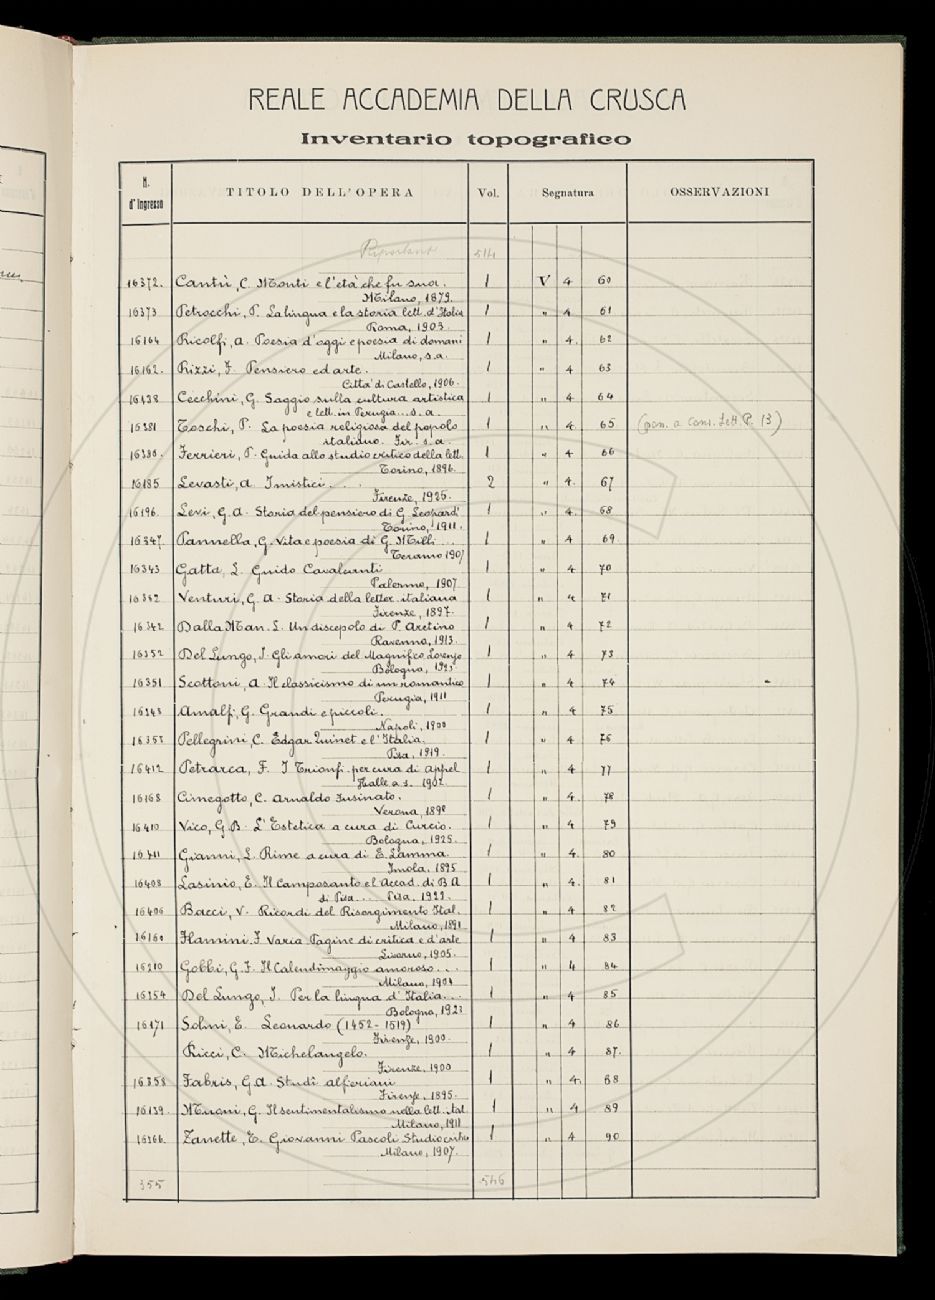 REALE ACCADEMIA DELLA CRUSCA
Inventario topografico
N. d'Ingresso TITOLO DELL'OPERA Vol. Segnatura OSSERVAZIONI
Riportano 514
16372. Cantù, C. Monti e l'età che fu sua. 1 V 4 60
Milano, 1879.
16373 Petrocchi, P. La lingua e la storia lett. d'Italia 1 " 4 61
Roma, 1903.
16164 Ricolfi, A. Poesia d'oggi e poesia di domani 1 " 4. 62
Milano, s.a.
16162. Rizzi, F. Pensiero ed arte. 1 " 4 63
Città di Castello, 1906.
16438 Cecchini, G. Saggio sulla cultura artistica 1 " 4 64
e lett. in Perugia... s. a.
16381 Toschi, P. La poesia religiosa del popolo 1 " 4 65 (pen. a cons. Lett. P. 13)
italiano. Fir. s. a.
16380. Ferrieri, P. Guida allo studio critico della lett. 1 " 4 66
Torino, 1896.
16185 Levasti, A. I mistici... 2 " 4. 67
Firenze, 1925.
16196. Levi, G. A. Storia del pensiero di G. Leopardi 1 " 4. 68
Torino, 1911.
16347. Pannella, G. Vita e poesia di G. Milli... 1 " 4 69
Teramo 1907
16343 Gatta, L. Guido Cavalcanti 1 " 4 70
Palermo, 1907.
16342 Venturi, G. A. Storia della letter. italiana 1 " 4 71
Firenze, 1897.
16342 Dalla Man. L. Un discepolo di P. Aretino 1 " 4 72
Ravenna, 1913.
16352 Del Lungo, I. Gli amori del Magnifico Lorenzo 1 " 4 73
Bologna, 1923
16351 Scottoni, A. Il classicismo di un romantico 1 " 4 74
Perugia, 1911
16343 Amalfi, G. Grandi e piccoli. 1 " 4 75
Napoli, 1900
16357 Pellegrini, C. Edgar Quinet e l'Italia. 1 " 4 76
Pisa, 1919.
16412 Petrarca, F. I Trionfi. per cura di Appel 1 " 4 77
Halle a. s. 1902.
16168 Cimegotto, C. Arnaldo Fusinato. 1 " 4. 78
Verona, 1898
16410 Vico, G. B. L'Estetica a cura di Curcio. 1 " 4 79
Bologna, 1925.
16411 Gianni, L. Rime a cura di E. Lamma. 1 " 4. 80
Imola. 1895
16408 Lasinio, E. Il Camposanto e l'Accad. di B A 1 " 4. 81
di Pisa... Pisa. 1923.
16406 Bacci, V. Ricordi del Risorgimento Ital. 1 " 4 82
Milano, 1891
16160 Flamini. F. Varia Pagine di critica e d'arte 1 " 4 83
Livorno, 1905.
16210 Gobbi, G. F. Il Calendimaggio amoroso... 1 " 4 84
Milano, 1904
16354 Del Lungo, I. Per la lingua d'Italia... 1 " 4 85
Bologna, 1923
16171 Solmi, E. Leonardo (1452-1519) 1 " 4 86
Firenze, 1900.
Ricci, C. Michelangelo. 1 " 4 87.
Firenze, 1900
16358 Fabris, G. A. Studî alfieriani 1 " 4. 88
Firenze, 1895.
16139. Muoni, G. Il sentimentalismo nella lett. ital. 1 " 4 89
Milano, 1911
16166. Zanette, E. Giovanni Pascoli Studio critico 1 " 4 90
Milano, 1907.
355 546